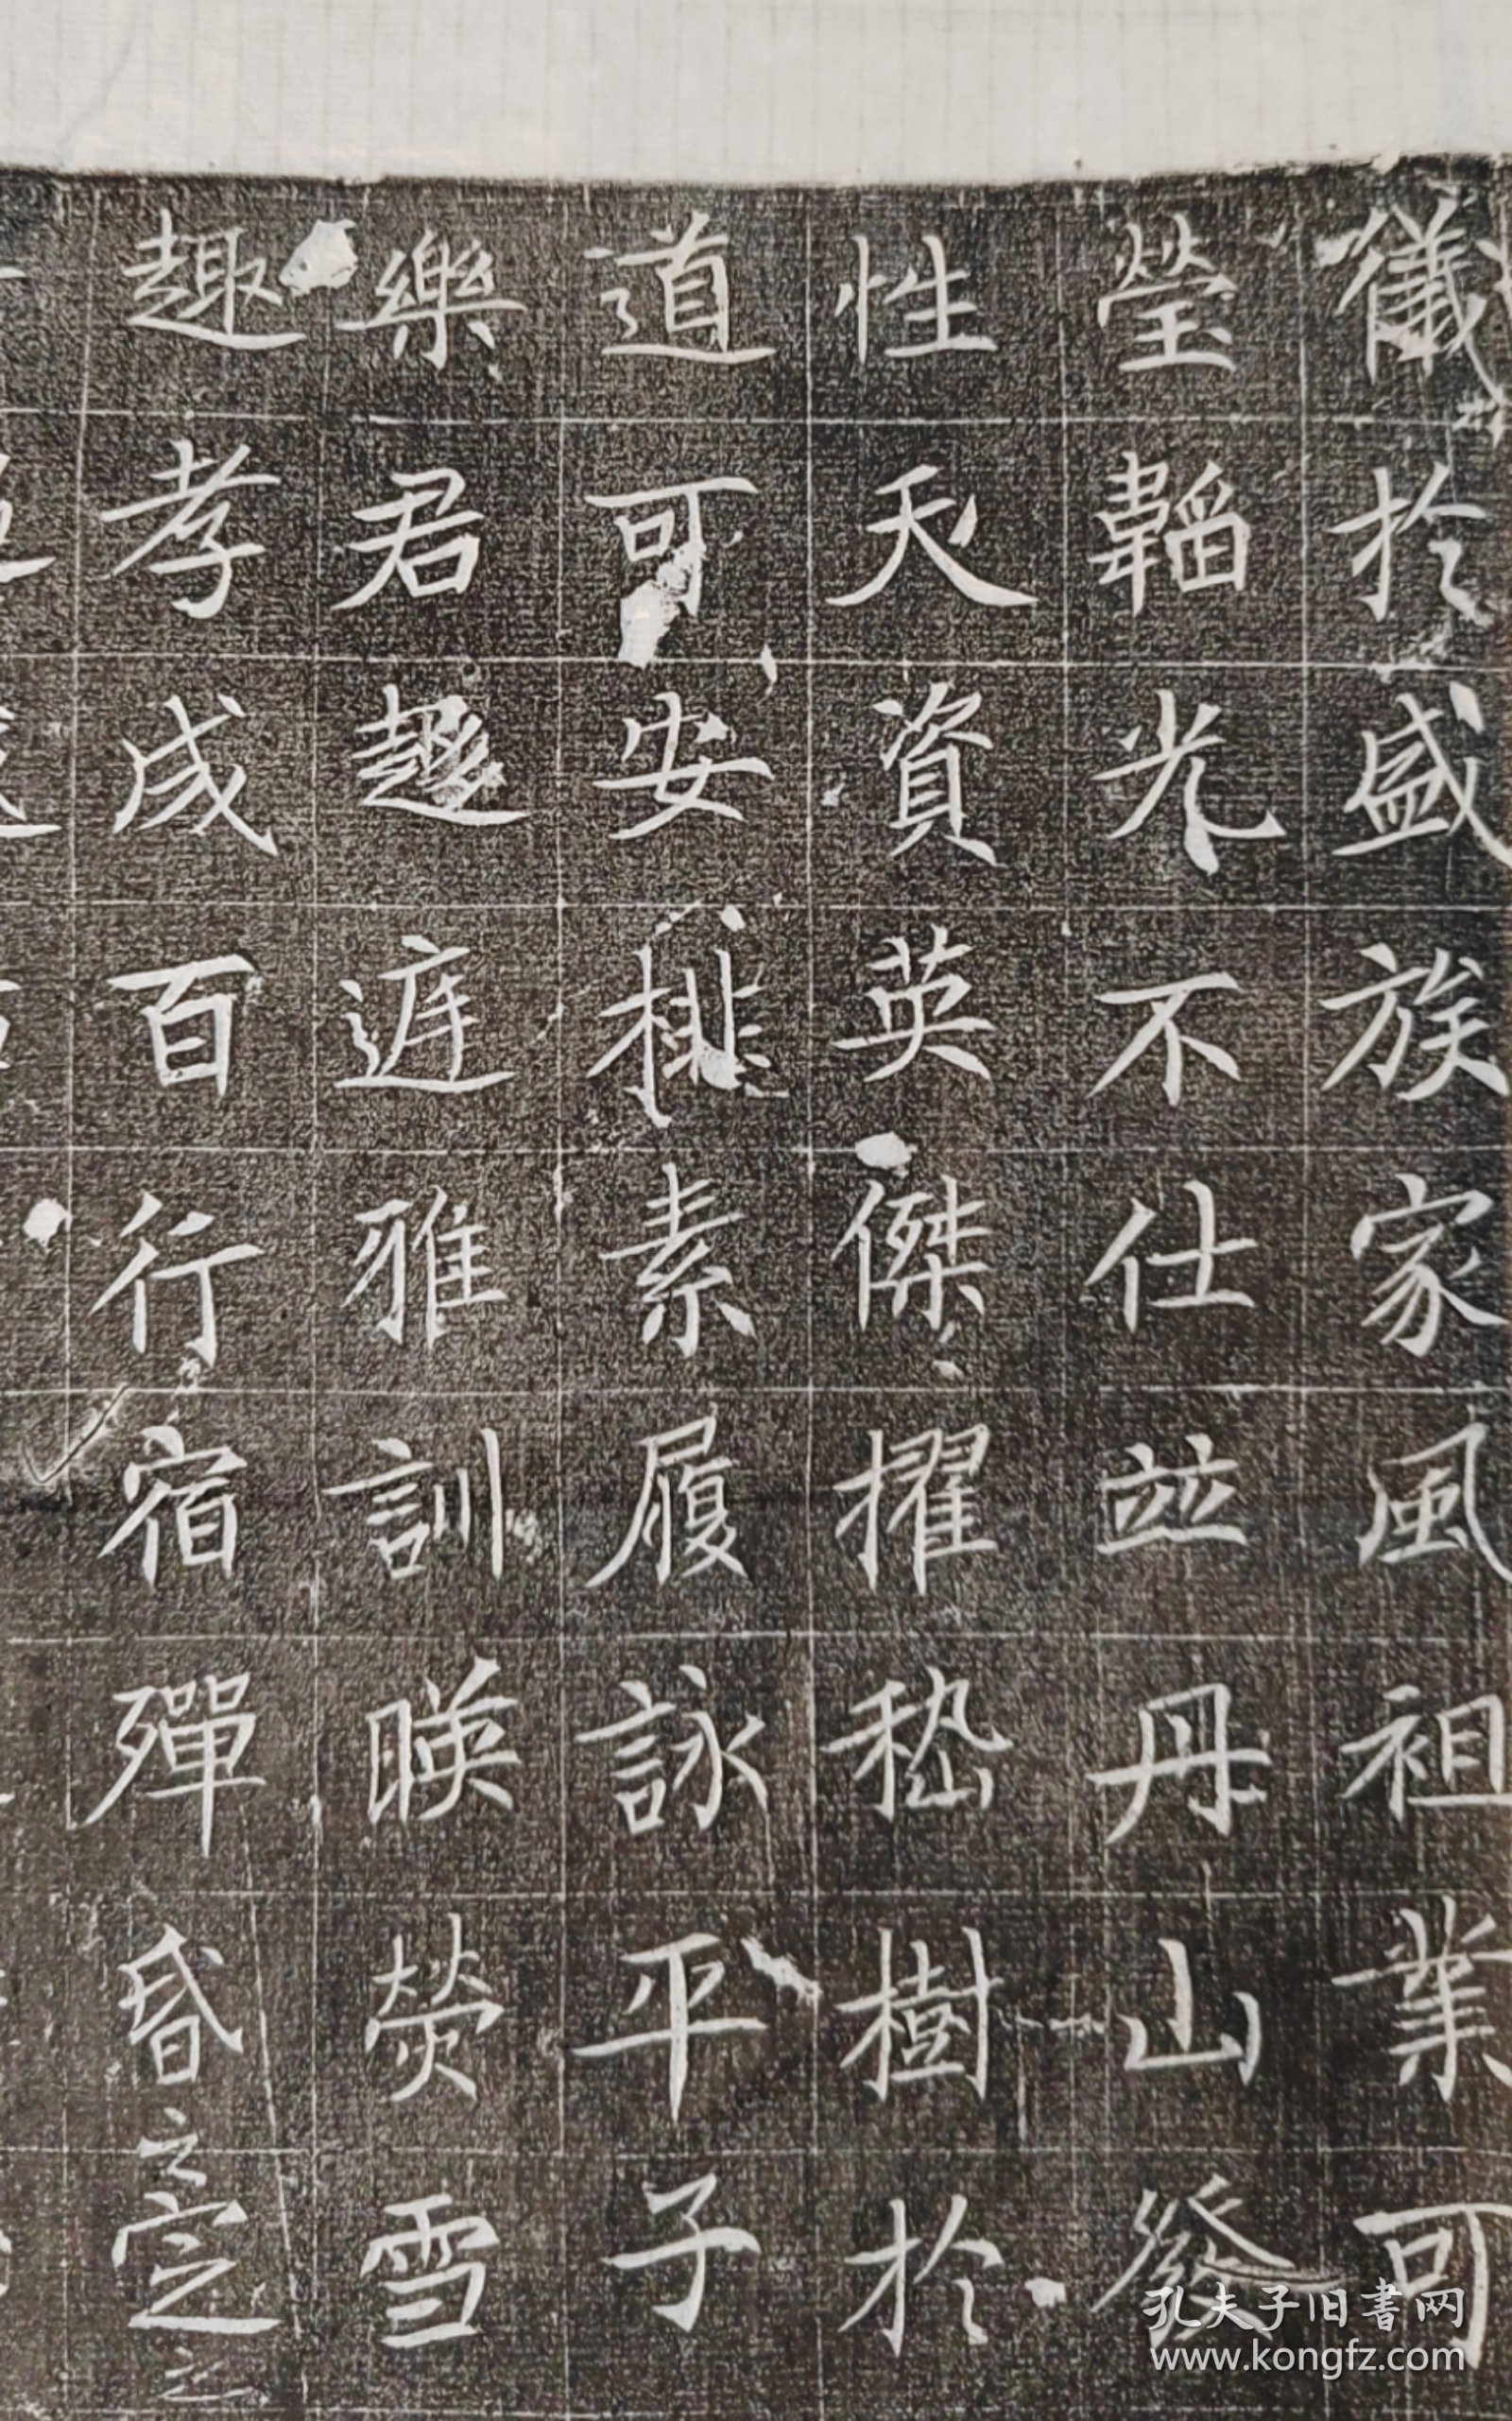 儀於盛族家風祖業可
瑩韜光不仕並丹山發
性天資英傑擢嵇樹於
道可安排素履詠平子
樂君趍遅雅訓暎熒雪
趣孝成百行宿殫昏之定之
孔夫子旧書网
www.kongfz.com